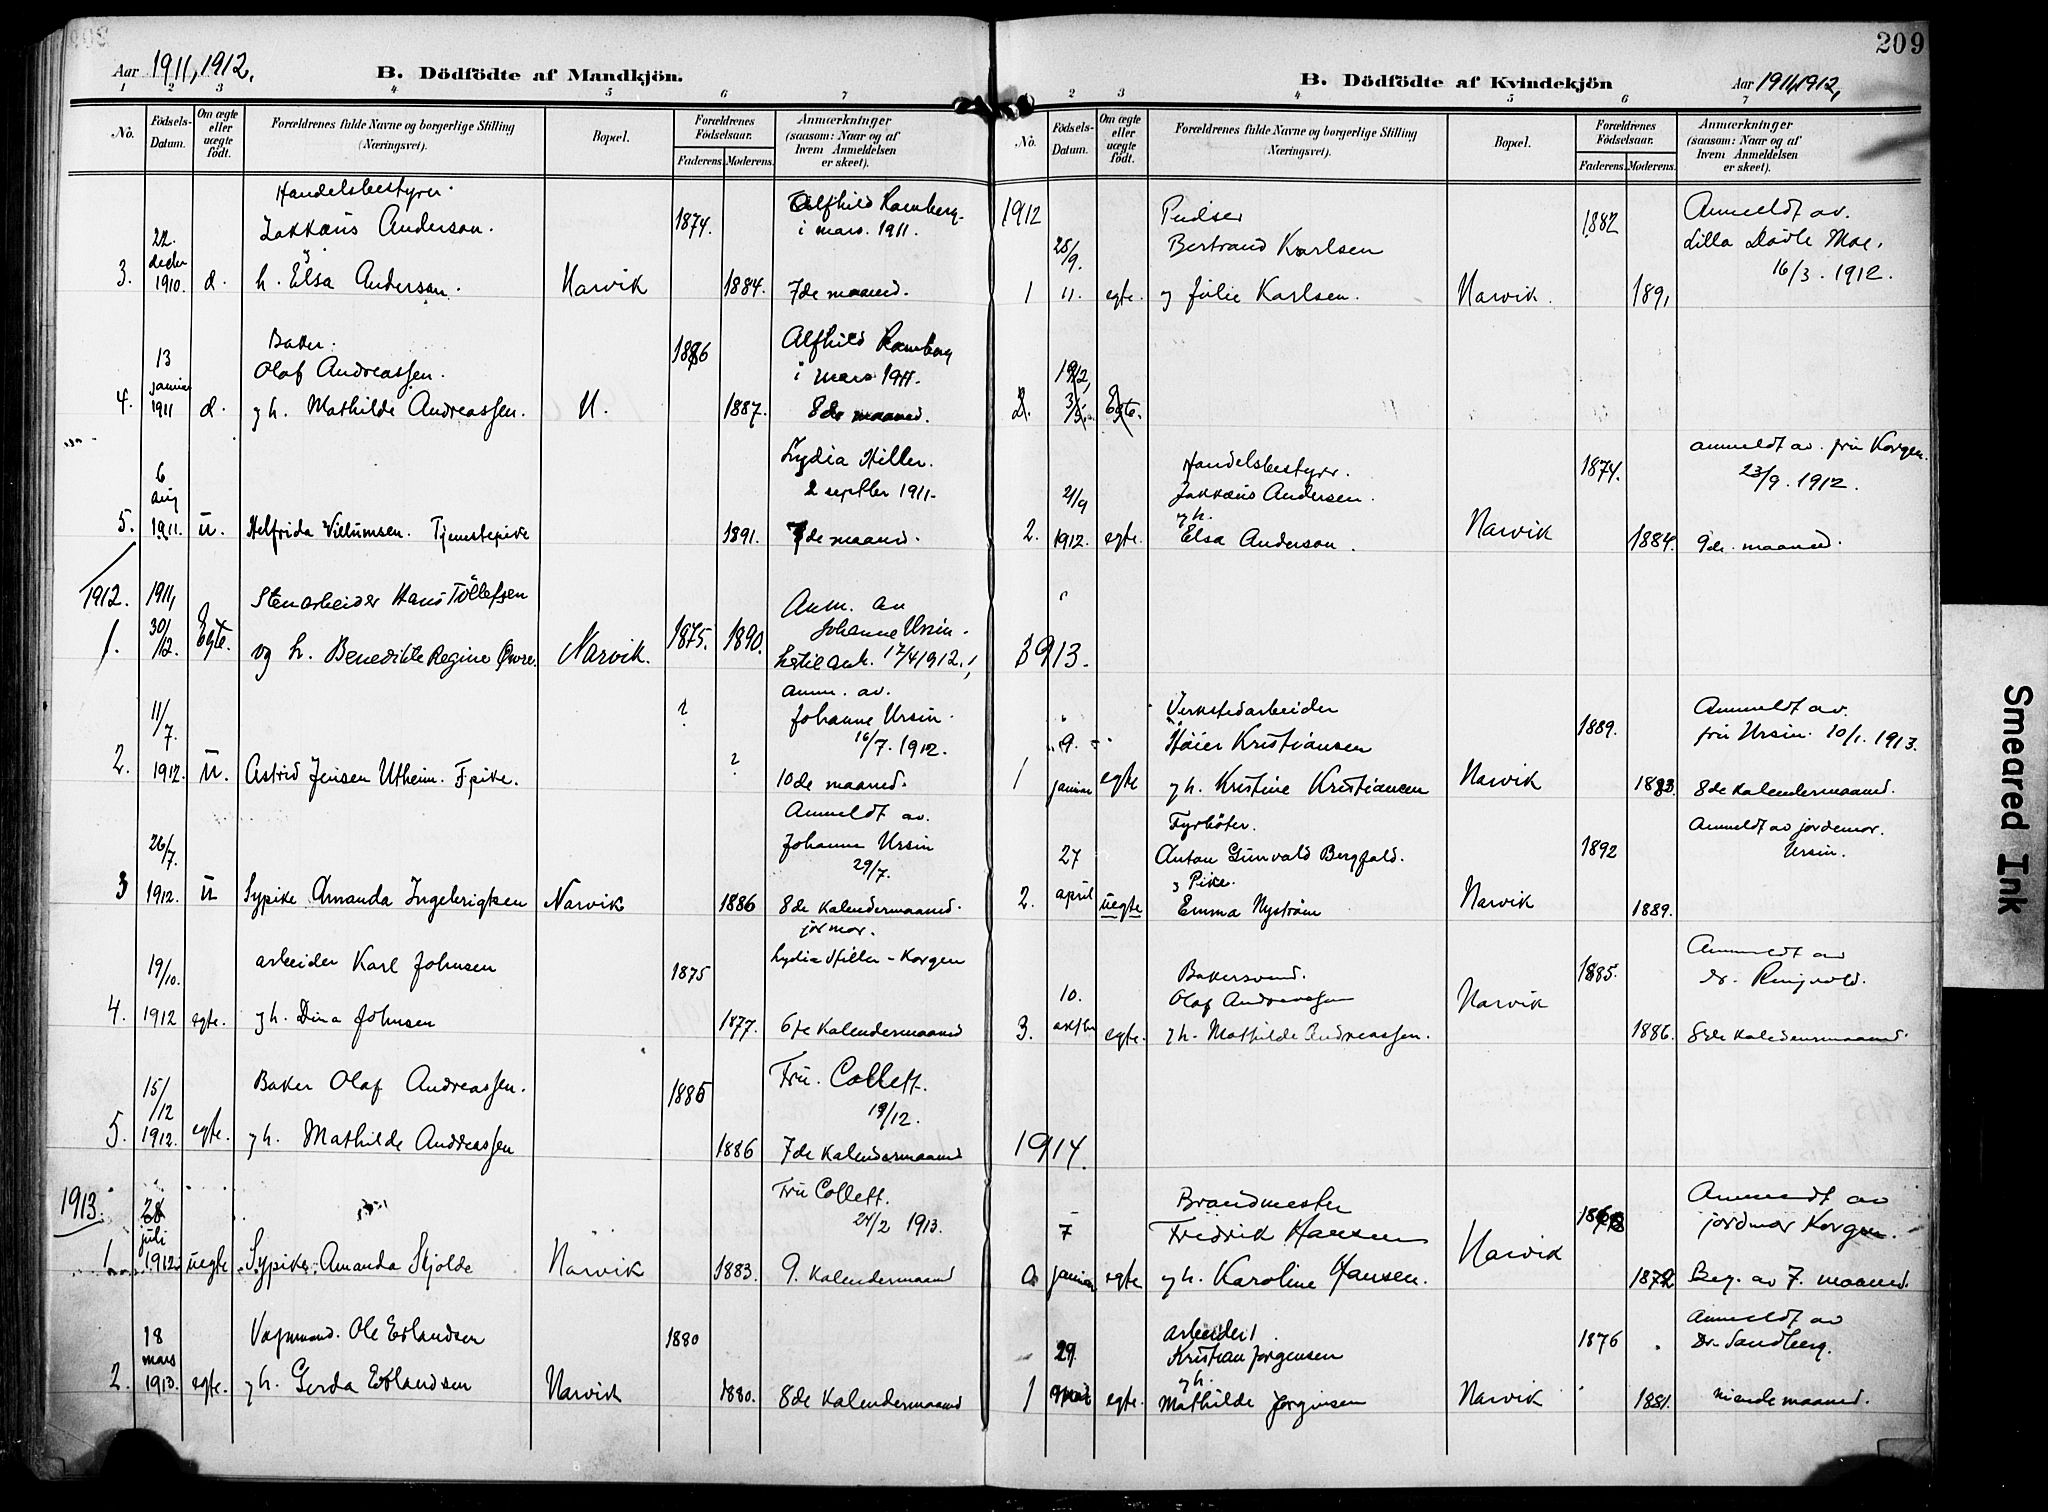 Aar 1911, 1912.
B. Dödfödte af Mandkjön.
1 2 3 4 5 6 7
No.
Födsels-Datum.
Om ægte eller uægte födt.
Forældrenes fulde Navne og borgerlige Stilling (Næringsvei).
Bopæl.
Forældrenes Födselsaar.
Faderens. Moderens.
Anmærkninger (saasom: Naar og af hvem Anmeldelsen er skeet).
Handelsbestyrer
22. Zakkæus Anderson. 1874. Alfhild Ramberg
decbr i mars. 1911.
3. 1910. d. h. Elsa Anderson. Narvik 1884. 7de maaned.
Baker.
13 Olaf Andreassen. 1886 Alfhild Ramberg
januar i mars 1911.
4. 1911 d. g h. Mathilde Andreassen. N. 1887. 8de maaned.
6 Lydia Hiller.
aug 2 septbr 1911.
5. 1911. u. Helfrida Villumsen. Tjenestepike 1891. 7de maaned.
1912. 1911, Stenarbeider Hans Tollefsen Anm. av
1. 30/12. Egte. og h. Benedikte Regine Øvre. Narvik. 1875. 1890. Johanne Ursin.
17/4 1912.
11/7. ? Anm. av.
Johanne Ursin.
16/7. 1912.
2. 1912. u. Astrid Jensen Utheim. Fpike. ? 10de maaned.
26/7. Anmeldt av.
Johanne Ursin
29/7.
3 1912. u Sypike Amanda Ingebrigtsen Narvik 1886 8de Kalendermaaned.
jormor.
19/10. arbeider Karl Johnsen 1875 Lydia Hiller - Korgen
4. 1912 egte. g h. Dina Johnsen 1877. 6te Kalendermaaned
15/12 Baker Olaf Andreassen. 1885 Fru. Collett.
19/12.
5. 1912. egte. g h. Mathilde Andreassen 1886 7de Kalendermaaned
1913. 28 Fru Collett.
juli 24/2 1913.
1. 1912. uegte Sypike Amanda Skjolde Narvik 1883. 9. Kalendermaaned
18 Vognmand. Ole Erlandsen 1880
mars
2. 1913. egte. g h. Gerda Erlandsen Narvik 1880. 8de Kalendermaaned
209
B. Dödfödte af Kvindekjön
Aar 1911, 1912,
2 3 4 5 6 7
No.
Födsels-Datum.
Om ægte eller uægte födt.
Forældrenes fulde Navne og borgerlige Stilling (Næringsvei).
Bopæl.
Forældrenes Födselsaar.
Faderens. Moderens.
Anmærkninger (saasom: Naar og af hvem Anmeldelsen er skeet).
1912 Pudser 1882 Anmeldt av.
28/9. Bertrand Karlsen Lilla Dövle Moe.
16/3. 1912.
1 11. egte. og Julie Karlsen. Narvik. 1891
1912,
2. 3/5. Egte.
anmeldt av. fru Korgen.
Handelsbestyrer. 1874. 23/9. 1912.
21/9 Zakkæus Andersen.
g h.
2. 1912. egte. Elsa Anderson. Narvik 1884. 9de. maaned.
1913.
Verkstedarbeider 1889. Anmeldt av.
9. Höier Kristiansen fru Ursin. 10/1. 1913.
1 januar egte g h. Kristine Kristiansen Narvik 1883. 8de Kalendermaaned.
Fyrböter. Anmeldt av jordemor.
27 Anton Gunvald Bergfald. 1892 Ursin.
g Pike.
2. april uegte Emma Nyström Narvik 1889.
Bakersvend. 1885. Anmeldt av
10. Olaf Andreassen Narvik dr. Ringvold.
3. egte. g h. Mathilde Andreassen. 1886. 8de Kalendermaaned.
1914.
Brandmester Anmeldt av
7 Fredrik Hansen Narvik jordmor Korgen.
januar egte g h. Karoline Hansen. 1872 Beg. av 7. maaned.
arbeider Anmeldt av
29. Kristian Jørgensen 1876 Dr. Sandberg.
g h.
1 egte. Mathilde Jørginsen Narvik 1881. niende maaned.
Smeared Ink